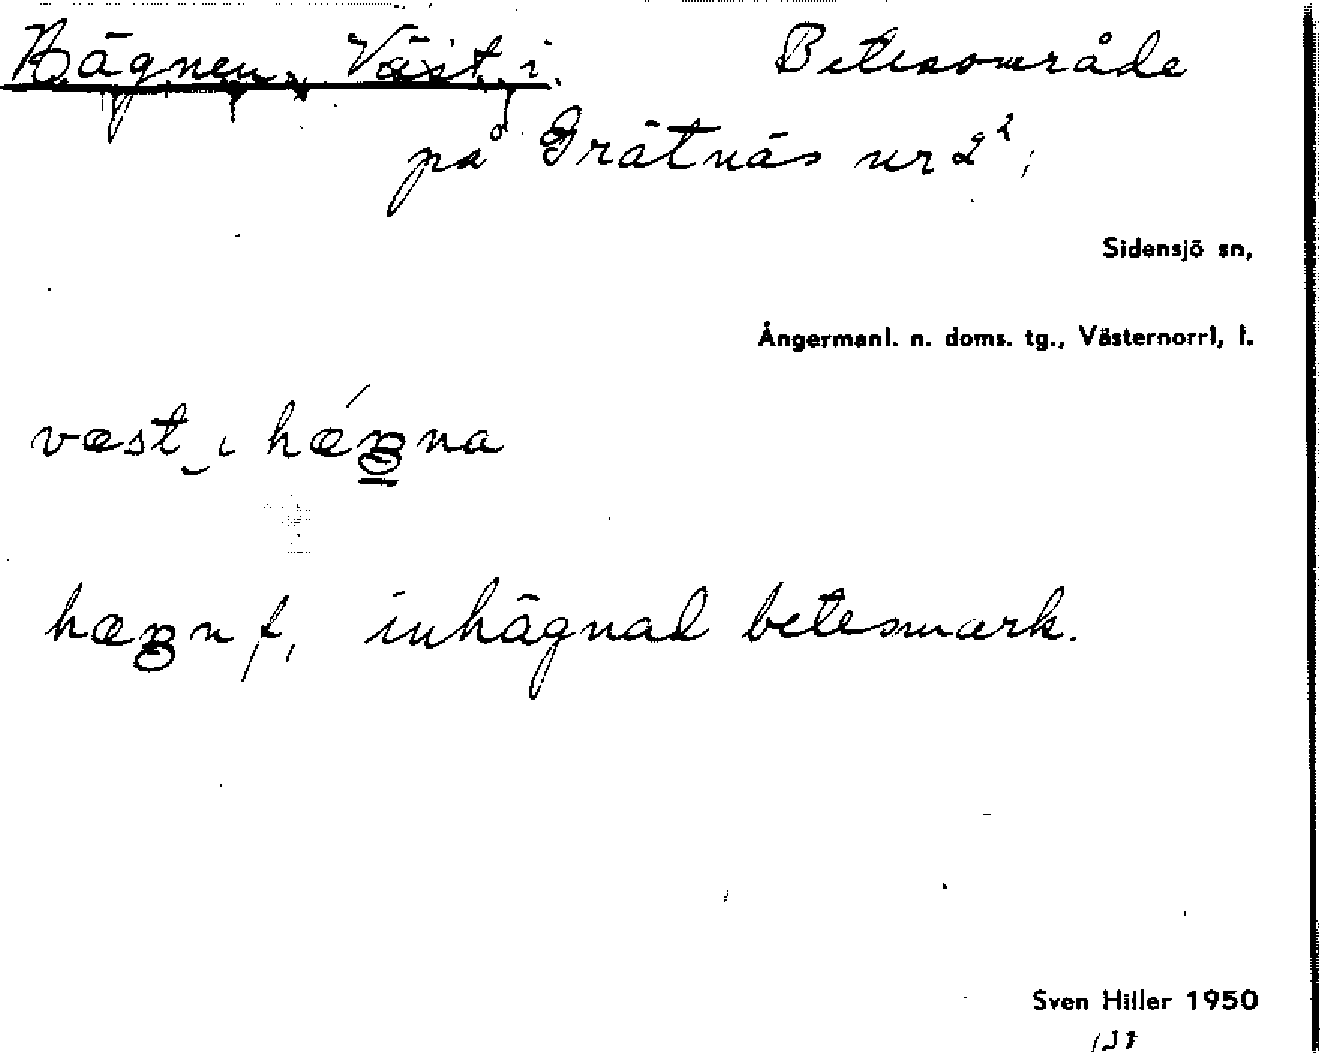 Hägnen, Väst i. Betesområde
på Grätnäs nr 2²;
Sidensjö sn,
Ångermanl. n. doms. tg., Västernorrl, l.
väst i hǽgna
hægn f, inhägnad betesmark.
Sven Hiller 1950